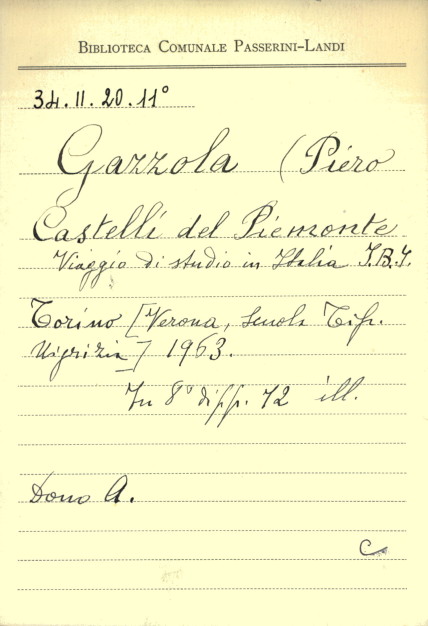 BIBLIOTECA COMUNALE PASSERINI-LANDI
34.II.20.11°
Gazzola (Piero
Castelli del Piemonte
Viaggio di studio in Italia I.B.I.
Torino [Verona, Scuola Tip.
] 1963.
In 8° di pp. 72 ill.
Dono A.
C